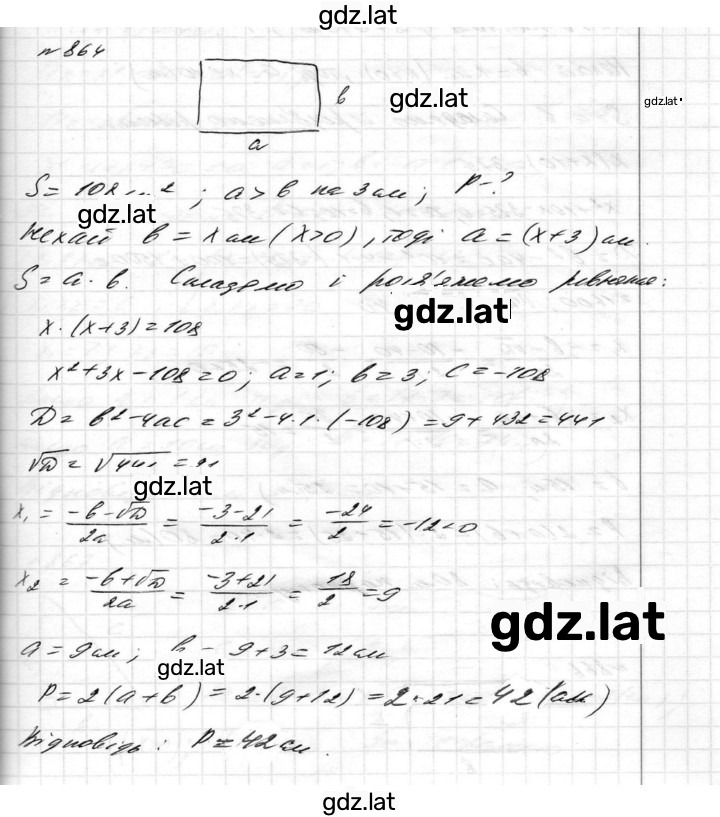 gdz.lat
№ 864
в
gdz.lat
gdz.lat
а
S = 108 ; a > b на 3 см; P - ?
gdz.lat
Нехай b = x см (x>0), тоді a = (x+3) см.
S = a · b. Складемо і розв'яжемо рівняння:
gdz.lat
x · (x+3) = 108
x² + 3x - 108 = 0; a = 1; b = 3; c = -108
D = b² - 4ac = 3² - 4·1·(-108) = 9 + 432 = 441
√D = √441 = 21
gdz.lat
x₁ = (-b - √D)/2a = (-3 - 21)/2·1 = -24/2 = -12 < 0
x₂ = (-b + √D)/2a = (-3 + 21)/2·1 = 18/2 = 9
gdz.lat
a = 9 см; b - 9 + 3 = 12 см
gdz.lat
P = 2(a + b) = 2·(9 + 12) = 2·21 = 42 (см)
Відповідь: P = 42 см.
gdz.lat